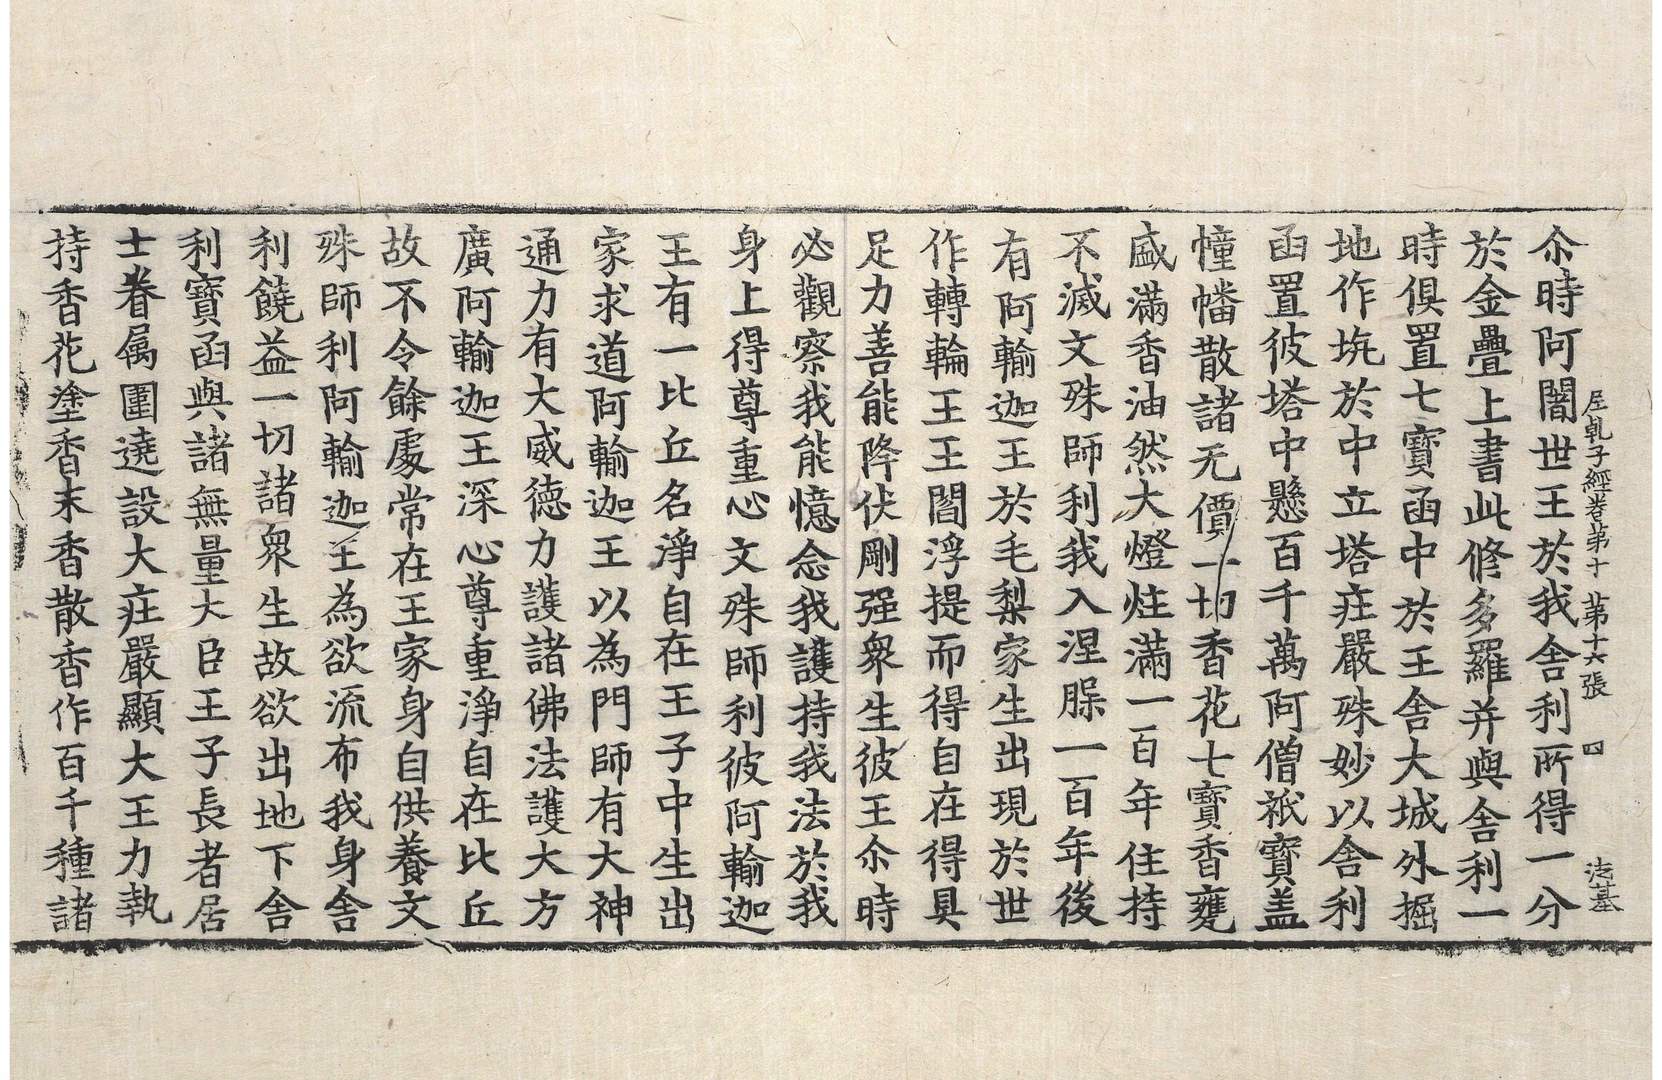 尼乹子經卷第十 第十六張 四 法基
尒時阿闍世王於我舍利所得一分
於金疊上書此修多羅并與舍利一
時俱置七寶函中於王舍大城外掘
地作坑於中立塔庄嚴殊妙以舍利
函置彼塔中懸百千萬阿僧祇寶盖
幢幡散諸无價一切香花七寶香甕
盛滿香油然大燈炷滿一百年住持
不滅文殊師利我入涅槃一百年後
有阿輸迦王於毛梨家生出現於世
作轉輪王王閻浮提而得自在得具
足力善能降伏剛强衆生彼王尒時
必觀察我能憶念我護持我法於我
身上得尊重心文殊師利彼阿輸迦
王有一比丘名淨自在王子中生出
家求道阿輸迦王以為門師有大神
通力有大威德力護諸佛法護大方
廣阿輸迦王深心尊重淨自在比丘
故不令餘處常在王家身自供養文
殊師利阿輸迦王為欲流布我身舍
利饒益一切諸衆生故欲出地下舍
利寶函與諸無量大臣王子長者居
士眷属圍遶設大庄嚴顯大王力執
持香花塗香末香散香作百千種諸